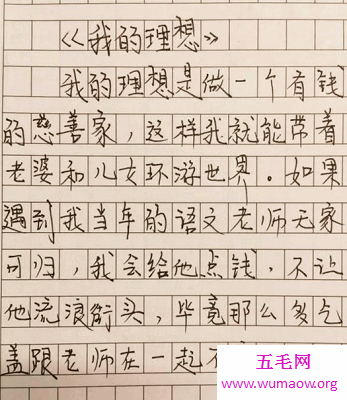 《我的理想》
我的理想是做一个有钱
的慈善家，这样我就能带着
老婆和儿女环游世界。如果
遇到我当年的语文老师无家
可归，我会给他点钱，不让
他流浪街头，毕竟那么多乞
盖跟老师在一起不
五毛网
www.wumaow.org